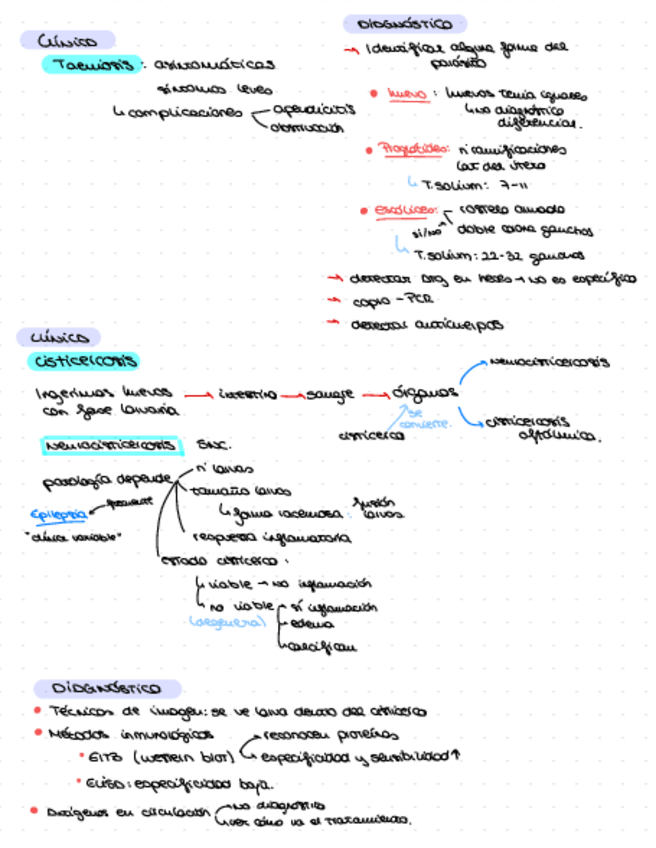 Clínica
Taeniosis: asintomáticas
síntomas leves
↳ complicaciones
apendicitis
obstrucción
DIAGNÓSTICO
→ Identificar alguna forma del
parásito
• huevo: huevos tenia iguales
↳ no diagnóstico
diferencial.
• Proglótides: nº ramificaciones
lat del útero
↳ T. solium: 7-11
• escólices:
rostelo armado
si/no
doble corona ganchos
↳ T. solium: 22-32 ganchos
→ detectar Arg en heces → no es específico
→ copro-PCR
→ detectar anticuerpos
Clínica
Cisticercosis
Ingerimos huevos → intestino → sangre → órganos
con fase larvaria
neurocisticercosis
cisticercosis
oftálmica.
se
convierte.
cisticerco
Neurocisticercosis SNC.
patología depende
nº larvas
tamaño larvas
↳ forma racemosa: fusión
larvas
respuesta inflamatoria
estado cisticerco:
Epilepsia
frecuente
"clínica variable"
viable → no inflamación
no viable
(degenera)
sí inflamación
edema
calcifican
DIAGNÓSTICO
• Técnicas de imagen: se ve larva dentro del cisticerco
• Métodos inmunológicos
• EITB (western blot)
reconocen proteínas
especificidad y sensibilidad ↑
• ELISA: especificidad baja.
• Antígenos en circulación
no diagnóstico
ver cómo va el tratamiento.